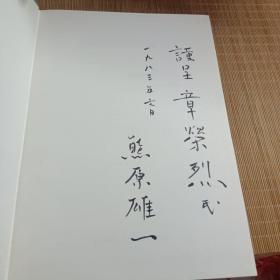 謹呈 章榮烈氏
一九八三年六月
熊原雄一